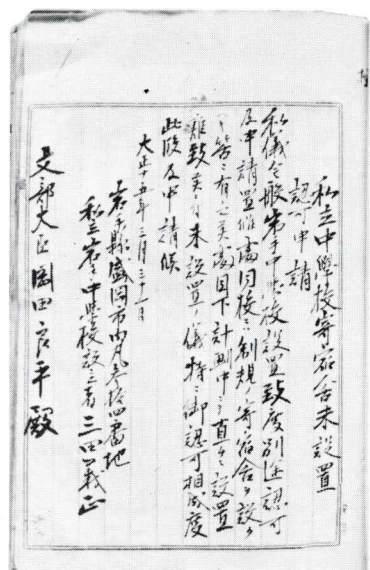 私立中學校寄宿舎未設置
認可申請
私儀今般岩手中學校設置致度別途認可
及申請置候處同校ニ制規ノ寄宿舎ヲ設ク
ヘキ筈ニ有之候處目下計画中ニテ直チニ設置
難致候ニ付未設置ノ儀特ニ御認可相成度
此段及申請候
大正十五年三月三十一日
岩手縣盛岡市内丸参拾四番地
私立岩手中學校設立者 三田義正
文部大臣岡田良平殿